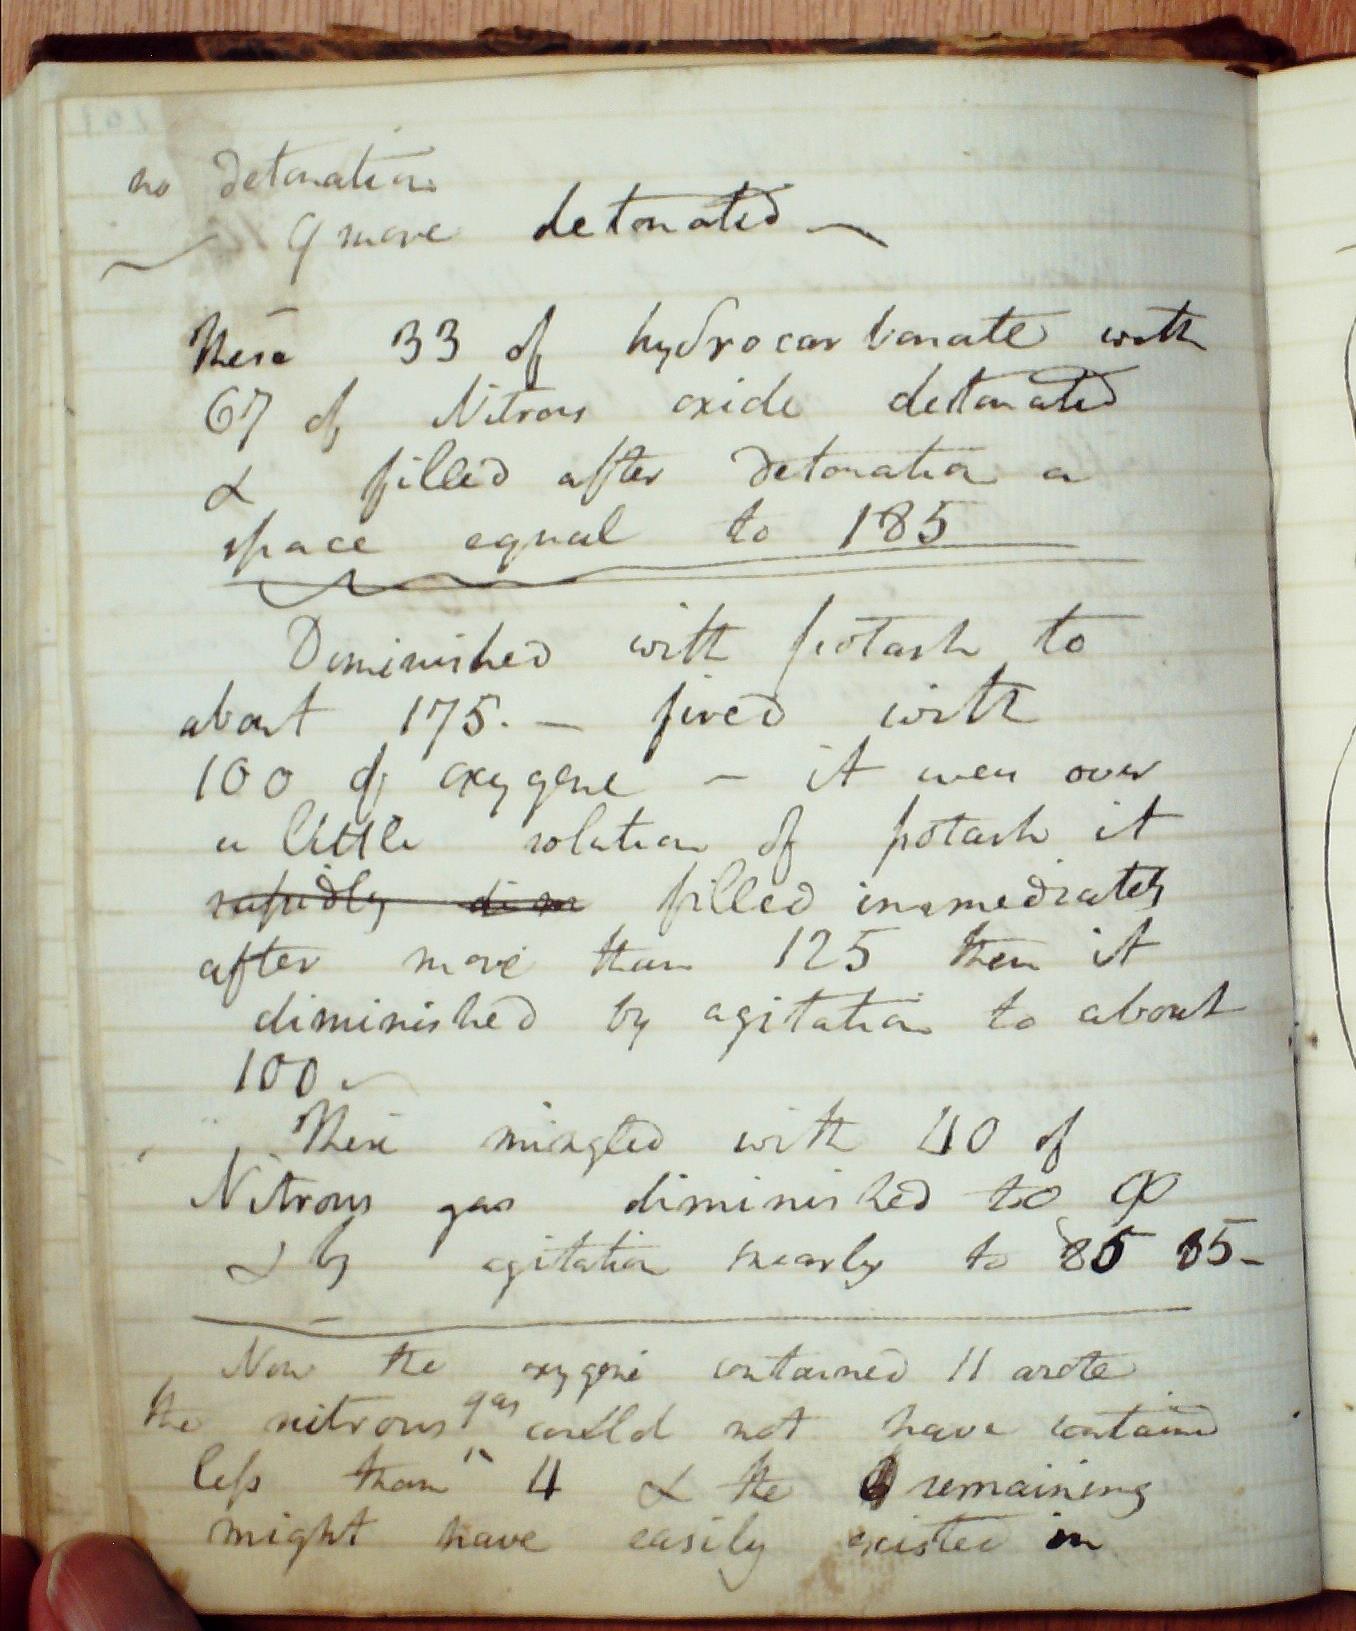 no detonation
9 more detonated —
These 33 of hydrocarbonate with
67 of Nitrous oxide detonated
& filled after detonation a
space equal to 185
Diminished with potash to
about 175. — fired with
100 of oxygene — it was over
a little solution of potash it
rapidly dim filled immediately
after more than 125 then it
diminished by agitation to about
100 —
These mingled with 40 of
Nitrous gas diminished to 90
& by agitation nearly to 85 85 —
Now the oxygene contained 11 azote
the nitrous gas could not have contained
less than 4 & the remaining
might have easily existed in